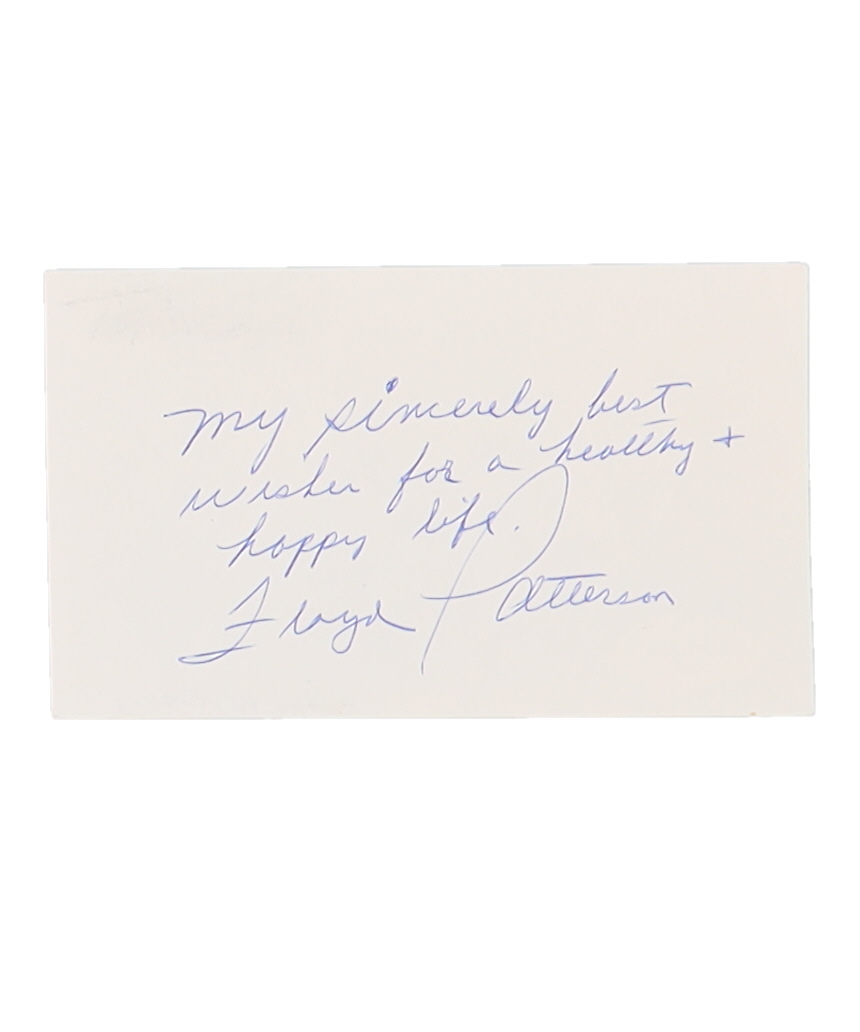 My sincerely best
wishes for a healthy +
happy life.
Floyd Patterson